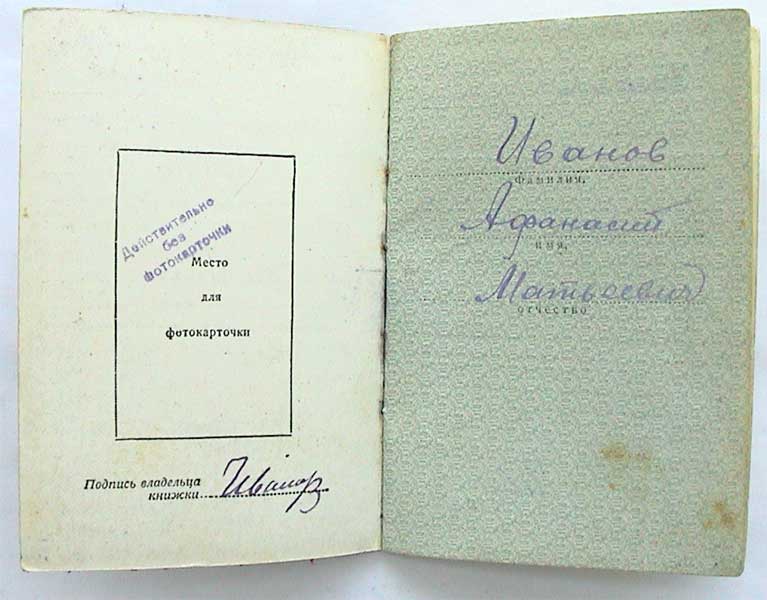 Действительно
без
фотокарточки
Место
для
фотокарточки
Подпись владельца
книжки Иванов
Иванов
фамилия,
Афанасий
имя,
Матвеевич
отчество